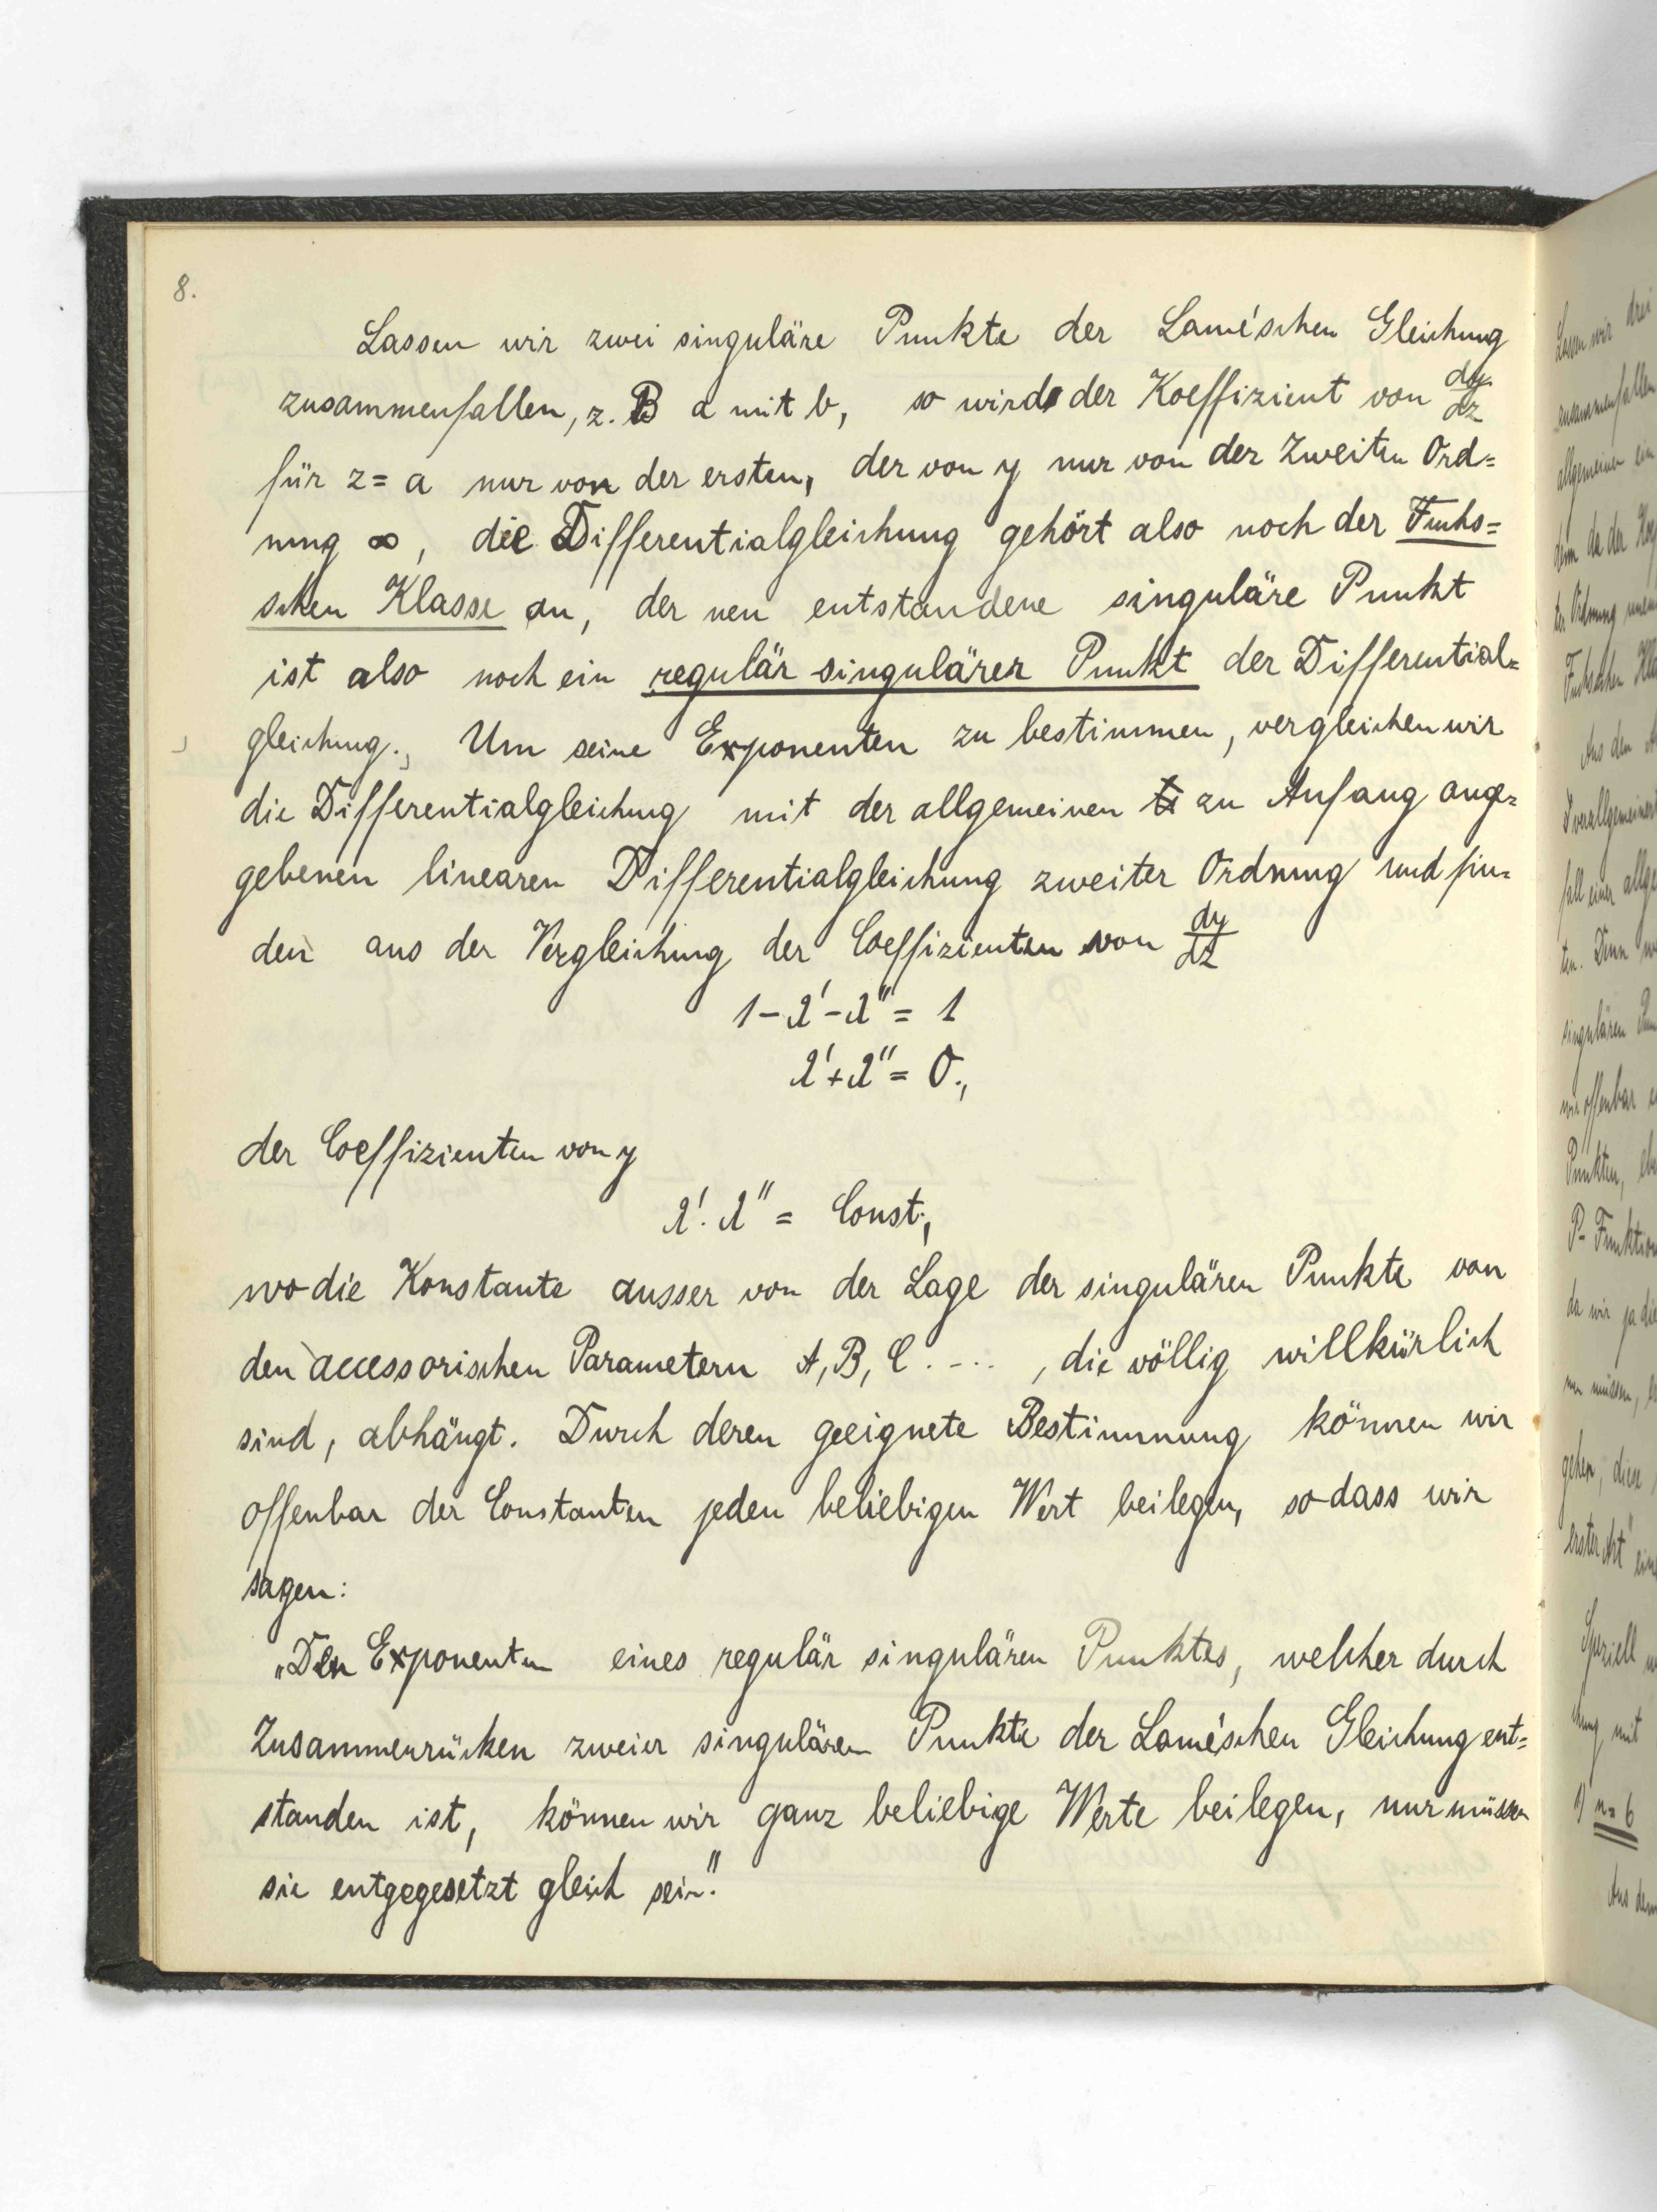 8.
Lassen wir zwei singuläre Punkte der Lamé'schen Gleichung
zusammenfallen, z. B a mit b, so wird der Koeffizient von dy/dz
für z = a nur von der ersten, der von y nur von der zweiten Ord=
nung ∞, die Differentialgleichung gehört also noch der Fuchs=
schen Klasse an, der neu entstandene singuläre Punkt
ist also noch ein regulär singulärer Punkt der Differential=
gleichung., Um seine Exponenten zu bestimmen, vergleichen wir
die Differentialgleichung mit der allgemeinen zu Anfang ange=
gebenen linearen Differentialgleichung zweiter Ordnung und fin=
den aus der Vergleichung der Coeffizienten von dy/dz
1 - λ' - λ'' = 1
λ' + λ'' = 0.,
der Coeffizienten von y
λ'. λ'' = Const.,
wo die Konstante ausser von der Lage der singulären Punkte von
den accessorischen Parametern A, B, C . - .. , die völlig willkürlich
sind, abhängt. Durch deren geeignete Bestimmung können wir
offenbar der Constanten jeden beliebigen Wert beilegen, so dass wir
sagen:
„Den Exponenten eines regulär singulären Punktes, welcher durch
Zusammenrücken zweier singulären Punkte der Lamé'schen Gleichung ent=
standen ist, können wir ganz beliebige Werte beilegen, nur müssen
sie entgegesetzt gleich sein."
Lassen wir drei
zusammenfallen
allgemeinen ein
denn da der
Ordnung
Aus den
fall einer
ten. Denn
singulären
wir offenbar
Punkten,
P- Funktion
da wir ja die
nen müssen,
gehen, diese
erster Art"
Speziell
mit
1) n = 6
Aus dem